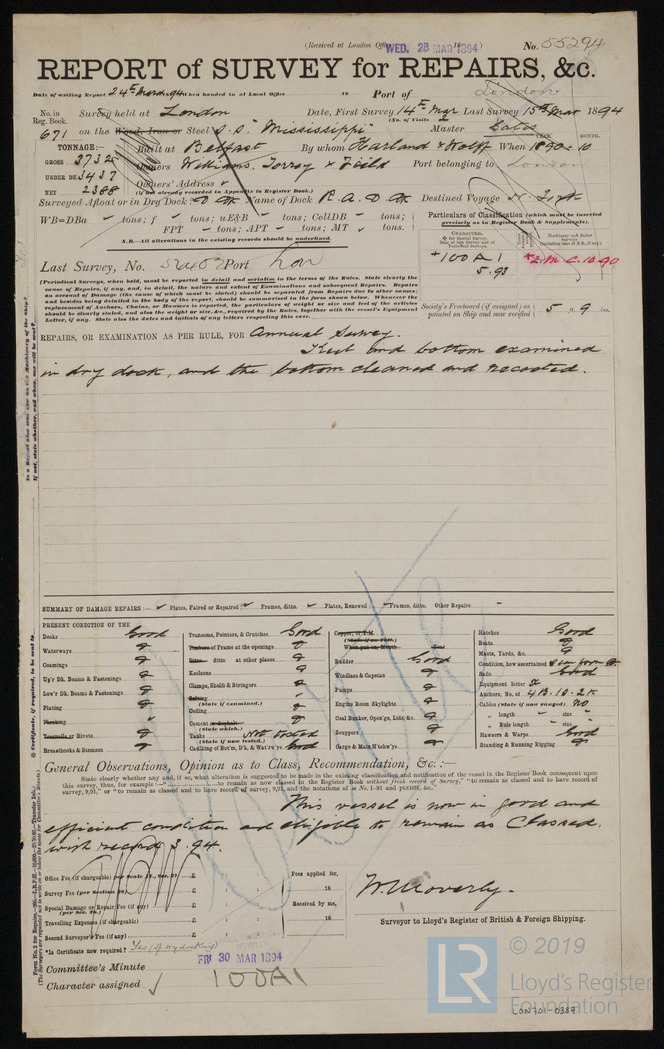 (Received at London Office WED. 28 MAR 1894) No. 55294
REPORT of SURVEY for REPAIRS, &c.
Date of writing Report 24th March 94 When handed in at Local Office 18 Port of London
No. in Reg. Book. Survey held at London Date, First Survey 14th Mar Last Survey 15th Mar 1894
(No. of Visits 2)
671 on the Wood, Iron or Steel S.S. Mississippi Master Gates
TONNAGE:— Built at Belfast By whom Harland & Wolff When 1890-10
YEAR. MONTH.
GROSS 3732 Owners Williams, Torrey & Feild Port belonging to London
UNDER DK 3437 Owners' Address
NET 2388 (if not already recorded in Appendix to Register Book.)
Surveyed Afloat or in Dry Dock? D Dk Name of Dock R. A. D. Dk Destined Voyage
WB=DBa tons; f tons; uE&B tons; CellDB tons;
FPT tons; APT tons; MT tons.
N.B.—All alterations in the existing records should be underlined.
Particulars of Classification (which must be inserted precisely as in Register Book & Supplements).
+100A1
5.93
+L.M.C. 10.90
Last Survey, No. Port Lon
(Periodical Surveys, when held, must be reported in detail and seriatim in the terms of the Rules. State clearly the cause of Repairs, if any, and, in detail, the nature and extent of Examinations and subsequent Repairs. Repairs on account of Damage (the cause of which must be stated) should be separated from Repairs due to other causes; and besides being detailed in the body of the report, should be summarised in the form shown below. Whenever the replacement of Anchors, Chains, or Hawsers is reported, the particulars of weight or size and test of the articles should be clearly stated, and also the weight or size, &c., required by the Rules, together with the vessel's Equipment Letter, if any. State also the dates and initials of any letters respecting this case.
Society's Freeboard (if assigned) as painted on Ship and now verified 5 ft. 9 ins.
REPAIRS, OR EXAMINATION AS PER RULE, FOR Annual Survey.
Keel and bottom examined
in dry dock, and the bottom cleaned and recoated.
SUMMARY OF DAMAGE REPAIRS:— Plates, Faired or Repaired; Frames, ditto. Plates, Renewed; Frames, ditto. Other Repairs
PRESENT CONDITION OF THE
Decks Good
Waterways
Coamings
Up'r Dk. Beams & Fastenings
Low'r Dk. Beams & Fastenings
Plating
Planking
Treenails or Rivets
Breasthooks & Stemson
Transoms, Pointers, & Crutches Good
Timbers of Frame at the openings
Ditto ditto at other places
Keelsons
Clamps, Shelfs & Stringers
Salting
(State if examined.)
Ceiling
Cement or Asphalt
(State which.)
Tanks Not tested
(State if now tested.)
Caulking of Bot'm, D'k, & Wat'rw'ys Good
Copper, or Y.M.
(State if on Felt.)
When put on, Month Year
Rudder Good
Windlass & Capstan
Pumps
Engine Room Skylights
Coal Bunker, Open'gs, Lids, &c.
Scuppers
Cargo & Main H'tchw'ys
Hatches Good
Boats
Masts, Yards, &c.
Condition, how ascertained
Sails Good
Equipment letter
Anchors, No. of 4B. 1S. 2K
Cables (State if now ranged) No
„ length size
„ length size
Hawsers & Warps Good
Standing & Running Rigging
General Observations, Opinion as to Class, Recommendation, &c.:—
State clearly whether any, and if so, what alteration is suggested to be made in the existing classification and notification of the vessel in the Register Book consequent upon this survey, thus, for example
This vessel is now in good and
efficient condition and eligible to remain as Classed.
with record 3.94.
Office Fee (if chargeable) £ : :
Survey Fee £ : :
Special Damage or Repair Fee (if any) £ : :
Travelling Expenses (if chargeable) £ : :
Second Surveyor's Fee (if any) £ : :
Fees applied for,
18
Received by me,
18
Surveyor to Lloyd's Register of British & Foreign Shipping.
*Is Certificate now required?
Committee's Minute FRI 30 MAR 1894
Character assigned 100A1
LR © 2019
Lloyd's Register
Foundation
LON701-0387